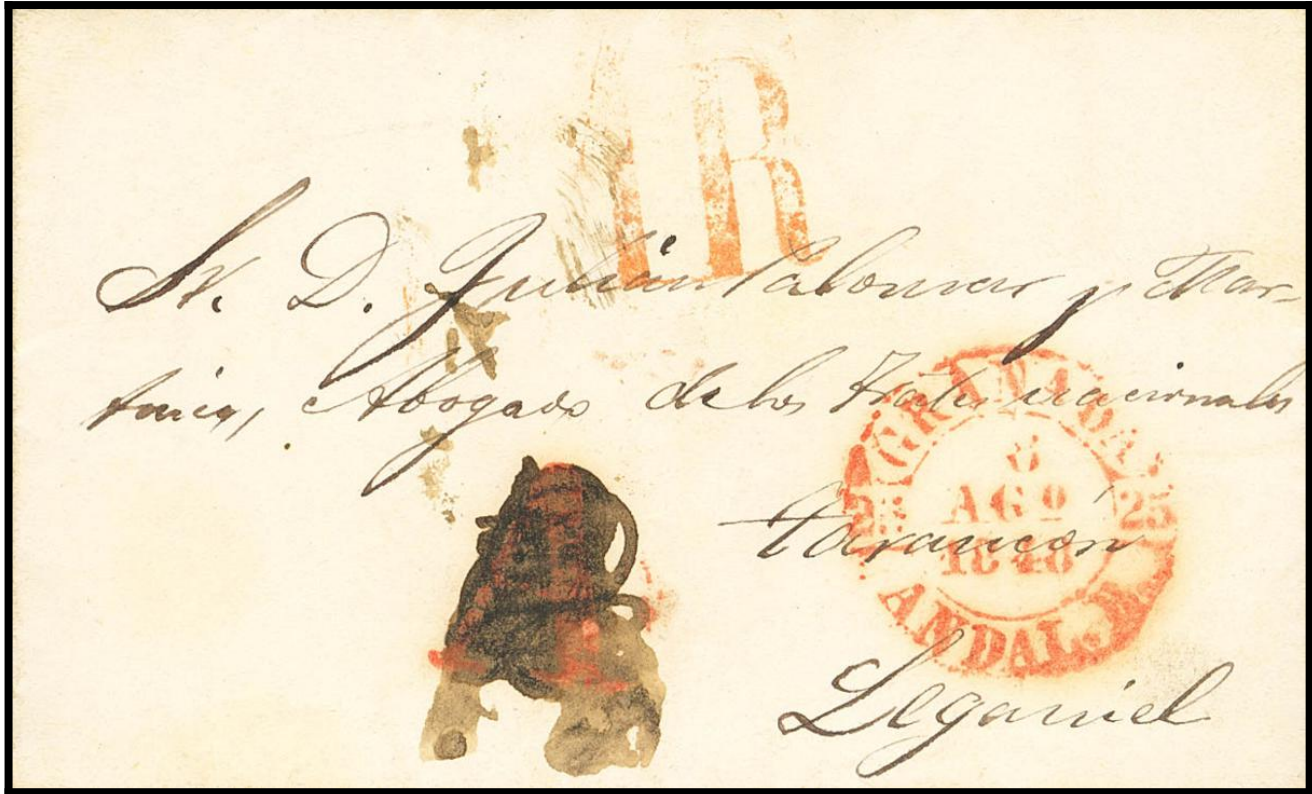 1R
Sr. D. Julian Palomar y Mar-
tinez, Abogado de los Trib.s nacionales
Tarancón
Leganiel
GRANADA
25 25
8
AGO
1848
ANDAL.